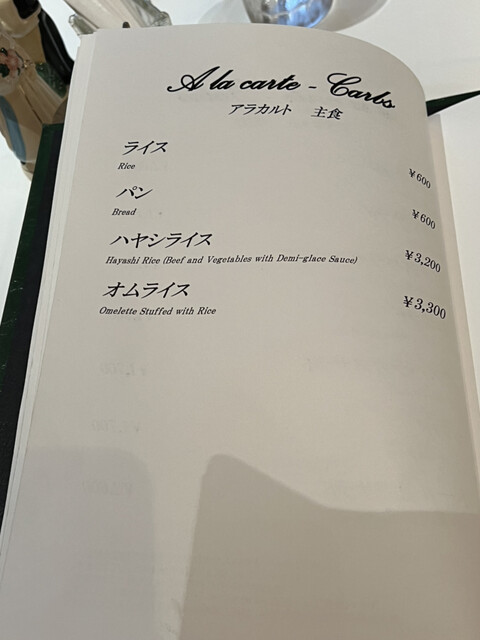 A la carte - Carbs
アラカルト 主食
ライス
Rice
¥600
パン
Bread
¥600
ハヤシライス
Hayashi Rice (Beef and Vegetables with Demi-glace Sauce)
¥3,200
オムライス
Omelette Stuffed with Rice
¥3,300